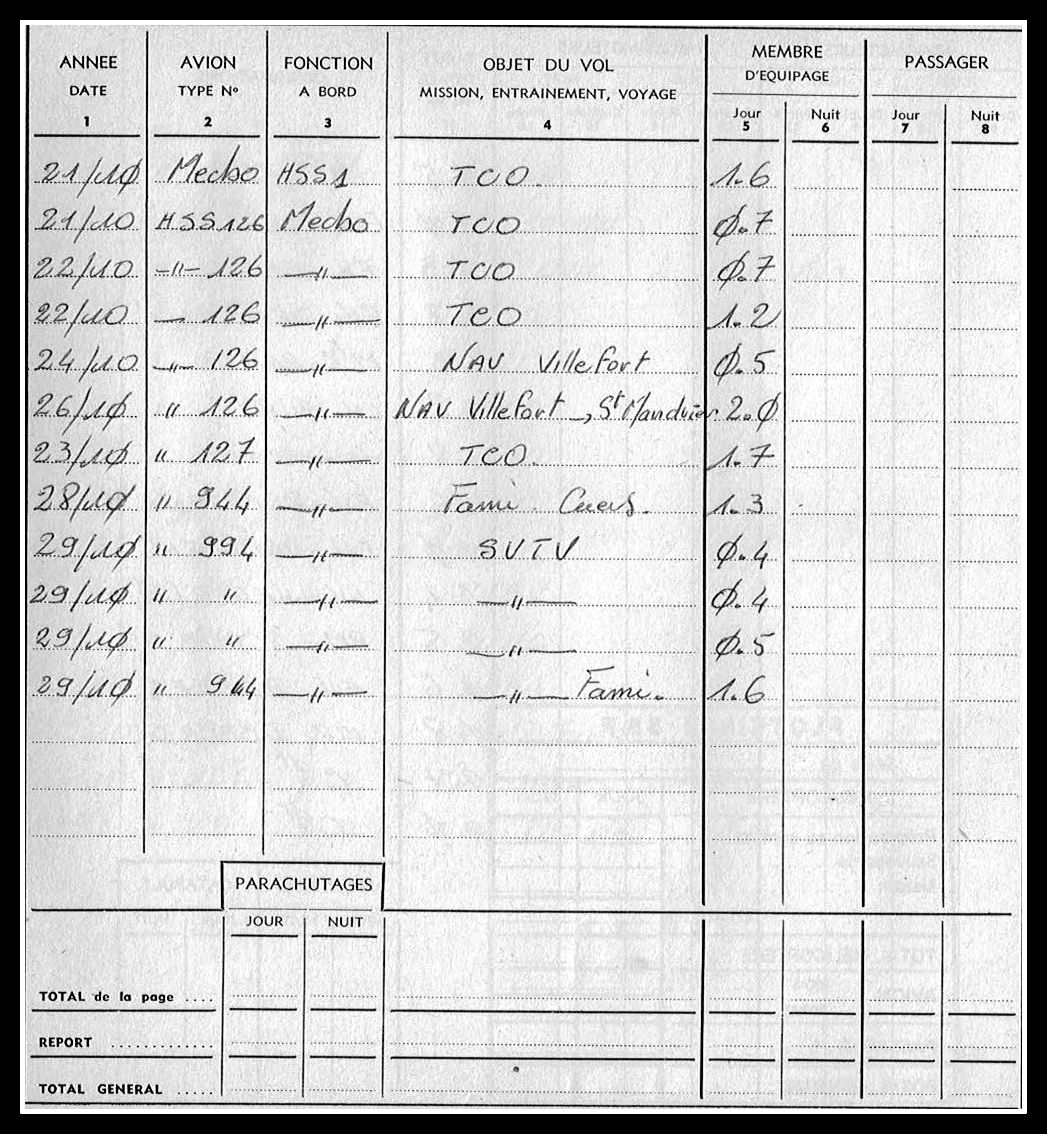 ANNEE AVION FONCTION OBJET DU VOL MEMBRE D'EQUIPAGE PASSAGER
DATE TYPE N° A BORD MISSION, ENTRAINEMENT, VOYAGE Jour Nuit Jour Nuit
1 2 3 4 5 6 7 8
21/10 Mecbo HSS1 TCO. 1.6
21/10 HSS126 Mecbo TCO Ø.7
22/10 -"- 126 —"— TCO Ø.7
22/10 — 126 —"— TCO 1.2
24/10 —"— 126 —"— NAV Villefort Ø.5
26/1Ø " 126 —"— NAV Villefort _, St Mandrier 2.Ø
23/1Ø " 127 —"— TCO. 1.7
28/1Ø " 944 —"— Fami. Cuers. 1.3
29/1Ø " 994 —"— SVTV Ø.4
29/1Ø " " —"— —"— Ø.4
29/1Ø " " —"— —"— Ø.5
29/1Ø " 944 —"— —"— Fami. 1.6
PARACHUTAGES
JOUR NUIT
TOTAL de la page ....
REPORT .............
TOTAL GENERAL .....